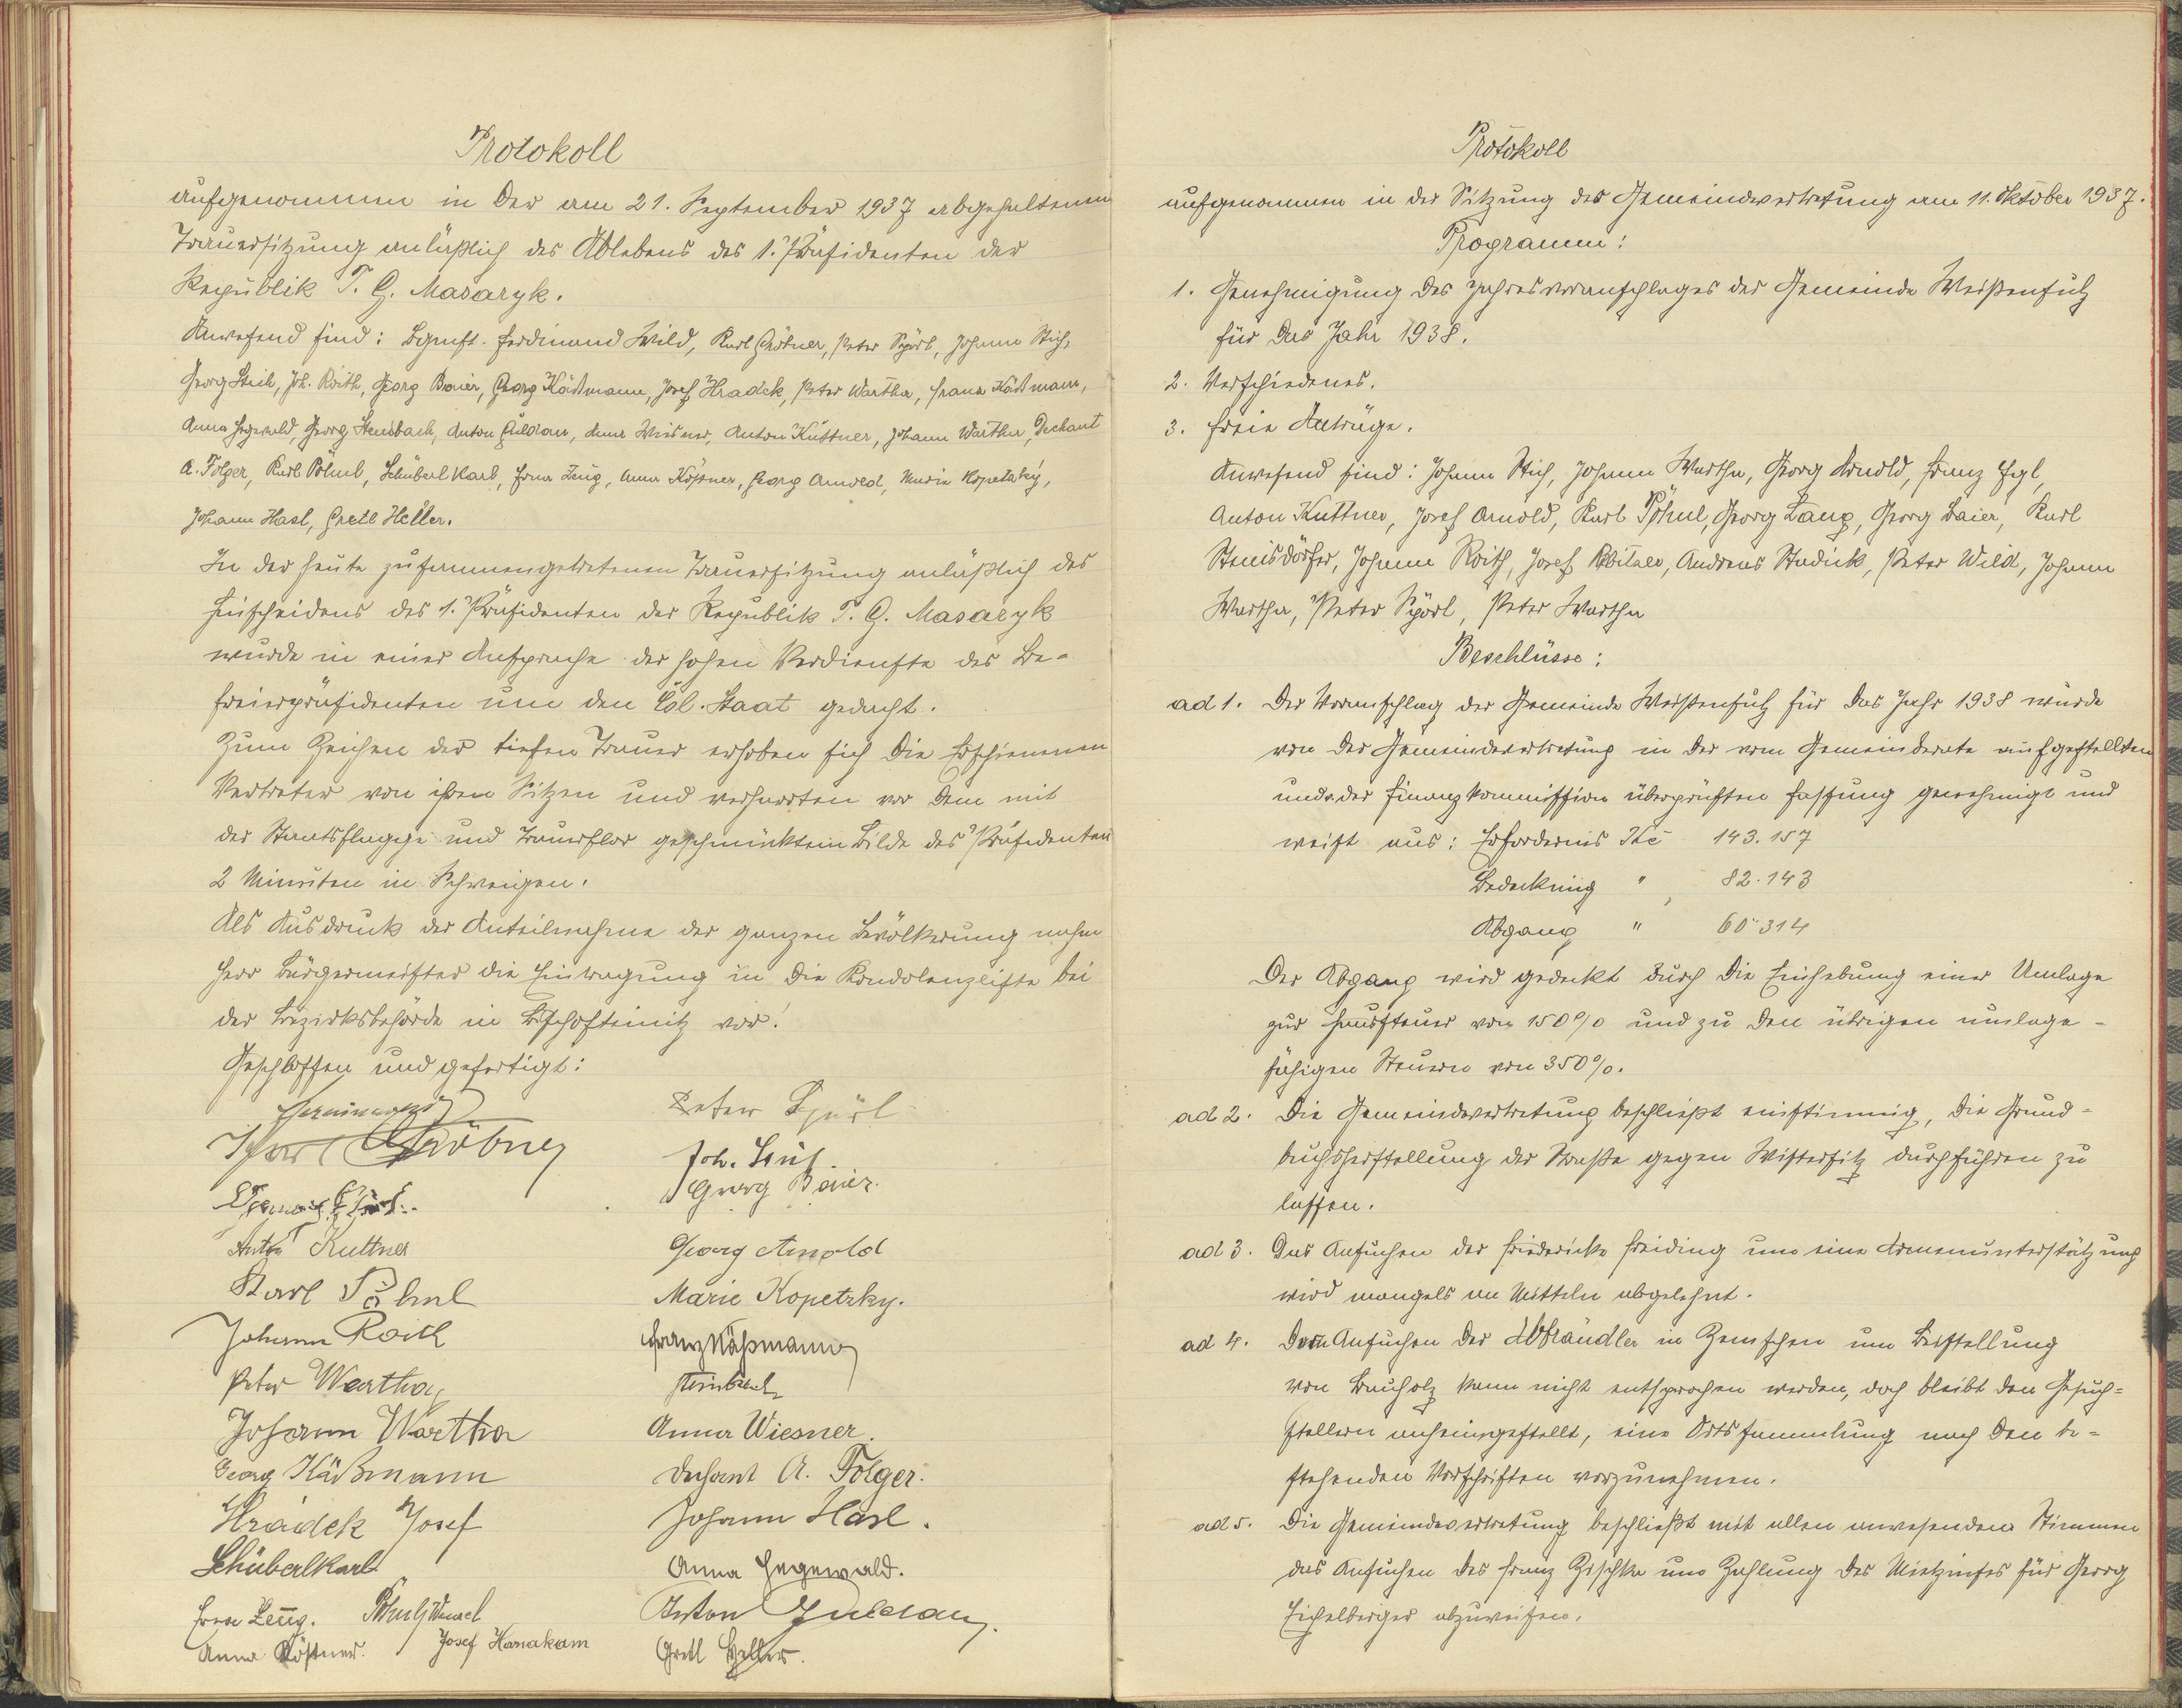 Protokoll
aufgenommen in der am 21. September 1937 abgehaltenen
Trauersitzung anläßlich des Ablebens des 1. Präsidenten der
Republik T. G. Masaryk.
Anwesend sind: Bgmst. Ferdinand Wild, Karl Gröbner, Peter Spörl, Johann Stich,
Georg Stich, Joh. Roith, Georg Baier, Georg Käßmann, Josef Hradek, Peter Wartha, Franz Käßmann,
Anna Hegewald, Georg Steinbach, Anton Guldan, Anna Wiesner, Anton Kuttner, Johann Wartha, Dechant
A. Folger, Karl Pöhnl, Schüberl Karl, Erna Zeug, Anna Köstner, Georg Arnold, Marie Kopetzky,
Johann Hasl, Gretl Heller.
In der heute zusammengetretenen Trauersitzung anläßlich des
Hinscheidens des 1. Präsidenten der Republik T. G. Masaryk
wurde in einer Ansprache der hohen Verdienste des Be-
freierpräsidenten um den čsl. Staat gedacht.
Zum Zeichen der tiefen Trauer erhoben sich die Erschienenen
Vertreter von ihren Sitzen und verharrten vor dem mit
der Staatsflagge und Trauerflor geschmückten Bilde des Präsidenten
2 Minuten in Schweigen.
Als Ausdruck der Anteilnahme der ganzen Bevölkerung nahm
Herr Bürgermeister die Eintragung in die Kondolenzliste bei
der Bezirksbehörde in Bischofteinitz vor!
Geschlossen und gefertigt:
Peter Spörl
Gröbner
Joh. Stich.
Georg Baier.
Anton Kuttner
Georg Arnold
Karl Pöhnl
Marie Kopetzky.
Johann Roith
Franz Käßmann
Peter Wartha
Steinbach
Johann Wartha
Anna Wiesner.
Georg Käßmann
Dechant A. Folger.
Hradek Josef
Johann Hasl.
Schüberl Karl
Anna Hegewald.
Erna Zeug. Pöhnl Wenzel
Anton Guldan.
Anna Köstner. Josef Hanakam
Gretl Heller.
Protokoll
aufgenommen in der Sitzung der Gemeindevertretung am 11. Oktober 1937.
Programm:
1. Genehmigung des Jahresvoranschlages der Gemeinde Weißensulz
für das Jahr 1938.
2. Verschiedenes.
3. Freie Anträge.
Anwesend sind: Johann Stich, Johann Wartha, Georg Arnold, Franz Igl,
Anton Kuttner, Josef Arnold, Karl Pöhnl, Georg Lang, Georg Baier, Karl
Steinsdörfer, Johann Roith, Josef Andreas Studick, Peter Wild, Johann
Wartha, Peter Spörl, Peter Wartha
Beschlüsse:
ad 1. Der Voranschlag der Gemeinde Weißensulz für das Jahr 1938 wurde
von der Gemeindevertretung in der vom Gemeinderate aufgestellten
und v. der Finanzkommission überprüften Fassung genehmigt und
weist aus: Erfordernis Kč 143.157
Bedeckung " 82.143
Abgang " 60.314
Der Abgang wird gedeckt durch die Einhebung einer Umlage
zur Haussteuer von 150% und zu den übrigen umlage-
fähigen Steuern von 350%.
ad 2. Die Gemeindevertretung beschließt einstimmig, die Grund-
buchsherstellung der Straße gegen Wistersitz durchführen zu
lassen.
ad 3. Das Ansuchen der Friedericke Freiding um eine Armenunterstützung
wird mangels an Mitteln abgelehnt.
ad 4. Dem Ansuchen der Abbrändler in Zemschen um Beistellung
von Bauholz kann nicht entsprochen werden, doch bleibt den Gesuch-
stellern anheimgestellt, eine Ortssammlung nach den be-
stehenden Vorschriften vorzunehmen.
ad 5. Die Gemeindevertretung beschließt mit allen anwesenden Stimmen
das Ansuchen des Franz Zischka um Zahlung des Mietzinses für Georg
Eichelberger abzuweisen.